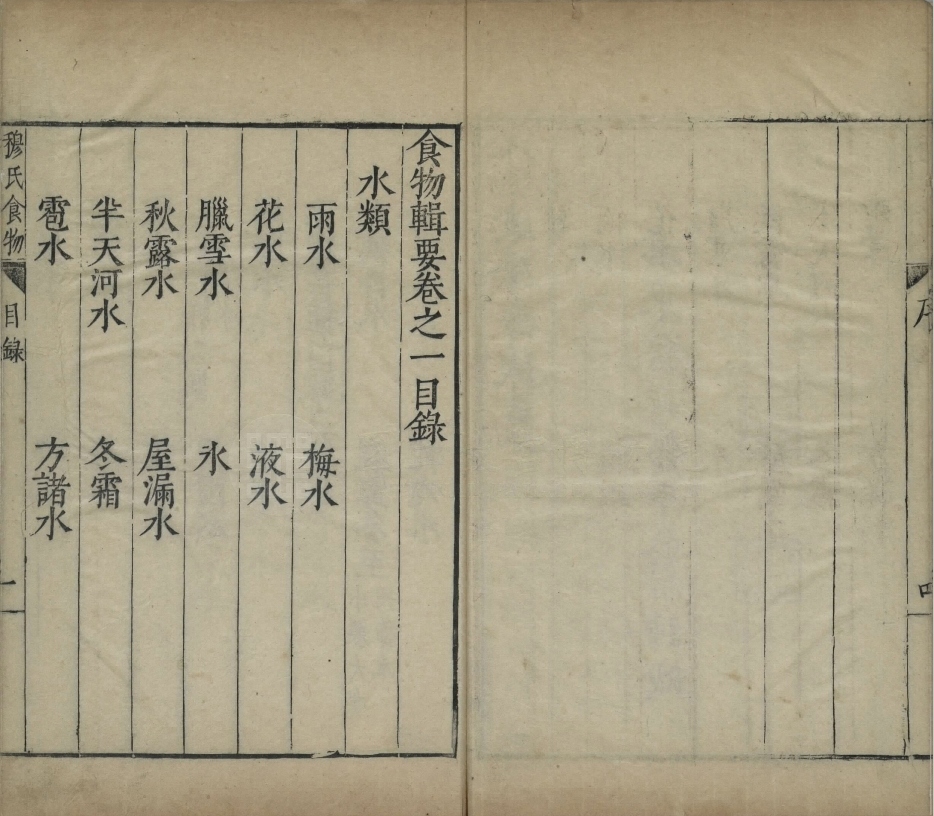 食物輯要卷之一目錄
水類
雨水 梅水
花水 液水
臘雪水 氷
秋露水 屋漏水
半天河水 冬霜
雹水 方諸水
穆氏食物 目録 一